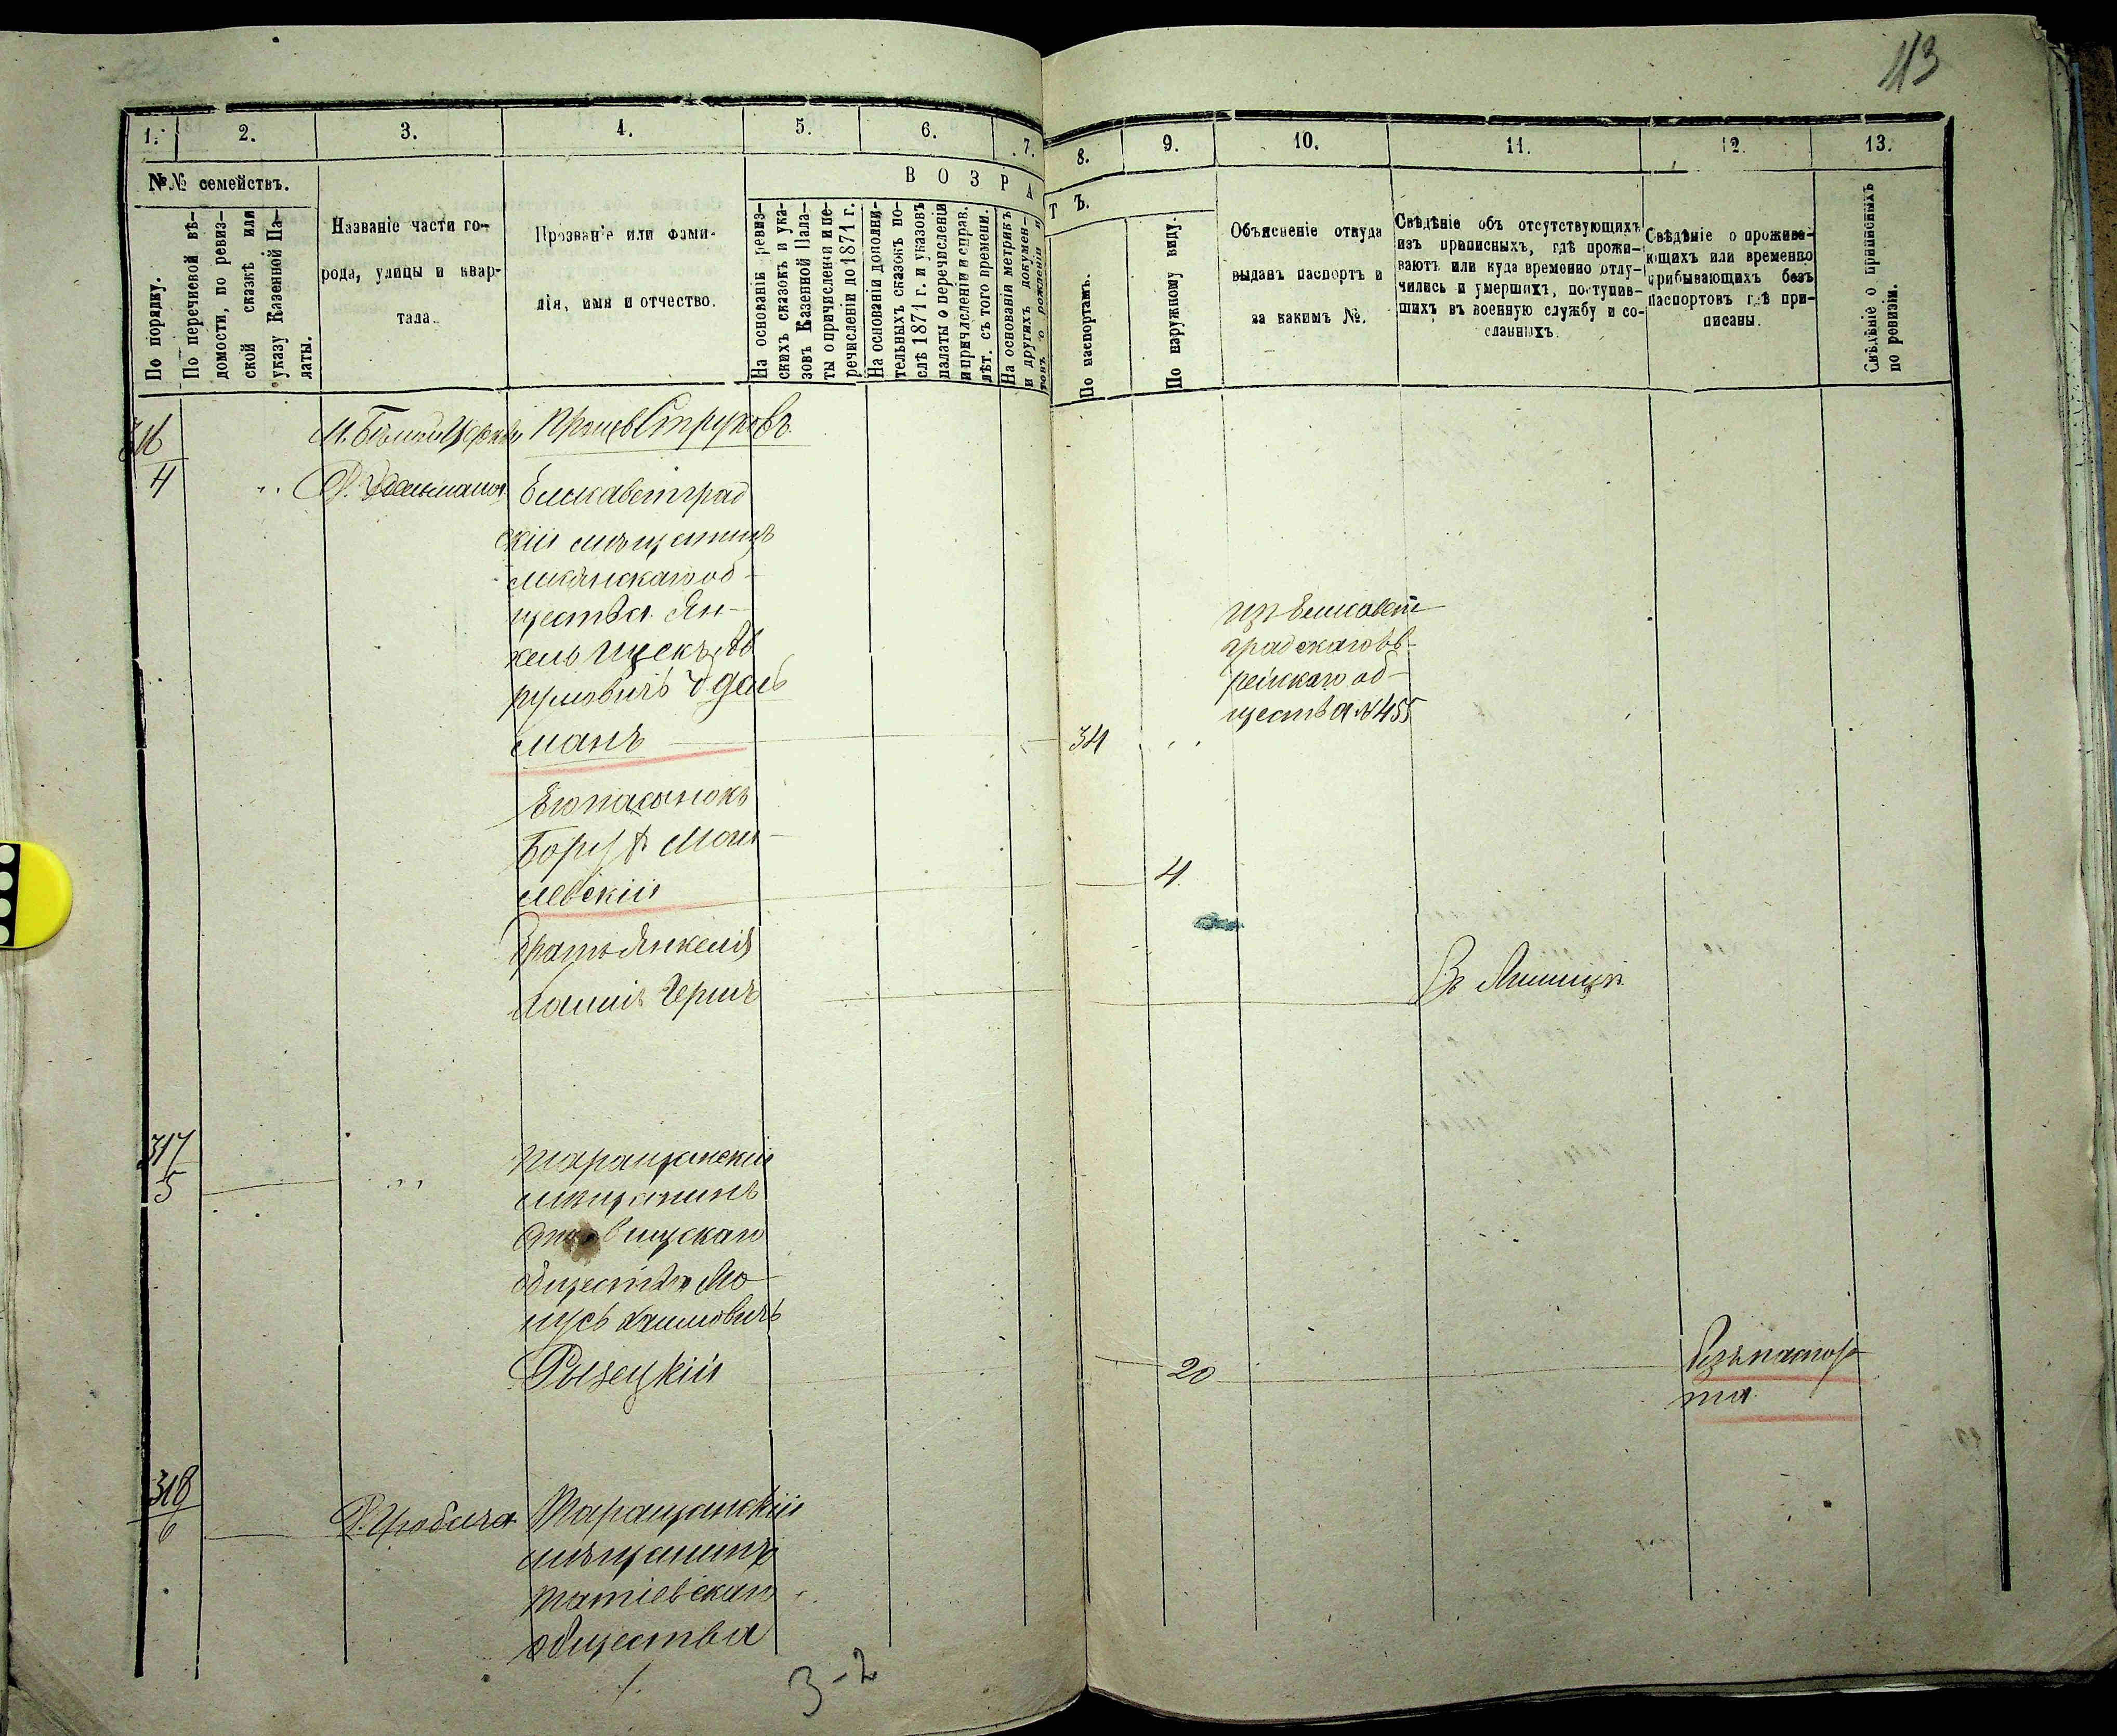 113
1. 2. 3. 4. 5. 6. 7. 8. 9. 10. 11. 12. 13.
№№ семействъ.
По порядку.
По перечневой вѣ-
домости, по ревиз-
ской сказкѣ или
указу Казенной Па-
латы.
Названіе части го-
рода, улицы и квар-
тала.
Прозваніе или фами-
лія, имя и отчество.
ВОЗРА
ТЪ.
На основаніи ревиз-
скихъ сказокъ и ука-
зовъ Казенной Пала-
ты о причисленіи и пе-
речисленіи до 1871 г.
На основаніи дополни-
тельныхъ сказокъ по-
слѣ 1871 г. и указовъ
палаты о перечисленіи
и причисленіи и справ.
лѣт. съ того времени.
На основаніи метрикъ
и другихъ докумен-
товъ о рожденіи и
По паспортамъ.
По наружному виду.
Объясненіе откуда
выданъ паспортъ и
за какимъ №.
Свѣдѣніе объ отсутствующихъ
изъ приписныхъ, гдѣ прожи-
ваютъ или куда временно отлу-
чились и умершихъ, поступив-
шихъ въ военную службу и со-
сланныхъ.
Свѣдѣніе о прожива-
ющихъ или временно
прибывающихъ безъ
паспортовъ гдѣ при-
писаны.
Свѣдѣніе о приписныхъ
по ревизіи.
316
4
М. Бѣлая Церковь
Елисаветград
скій мѣщанинъ
общества Ян-
кель Ицекъ Аб
румовичъ Удель
манъ
34
изъ Елисавет
градскаго Ев-
рейскаго об-
щества № 455
Его пасынокъ
Борух Моги-
левскій
4
Братъ Янкеля
Хаимъ Гершъ
317
5
Таращанскій
мѣщанинъ
Ставищскаго
общества Мо
шусь Хаимовичъ
20
Безъ паспор
та
318
6
Таращанскій
мѣщанинъ
Татіевскаго
общества
3-2